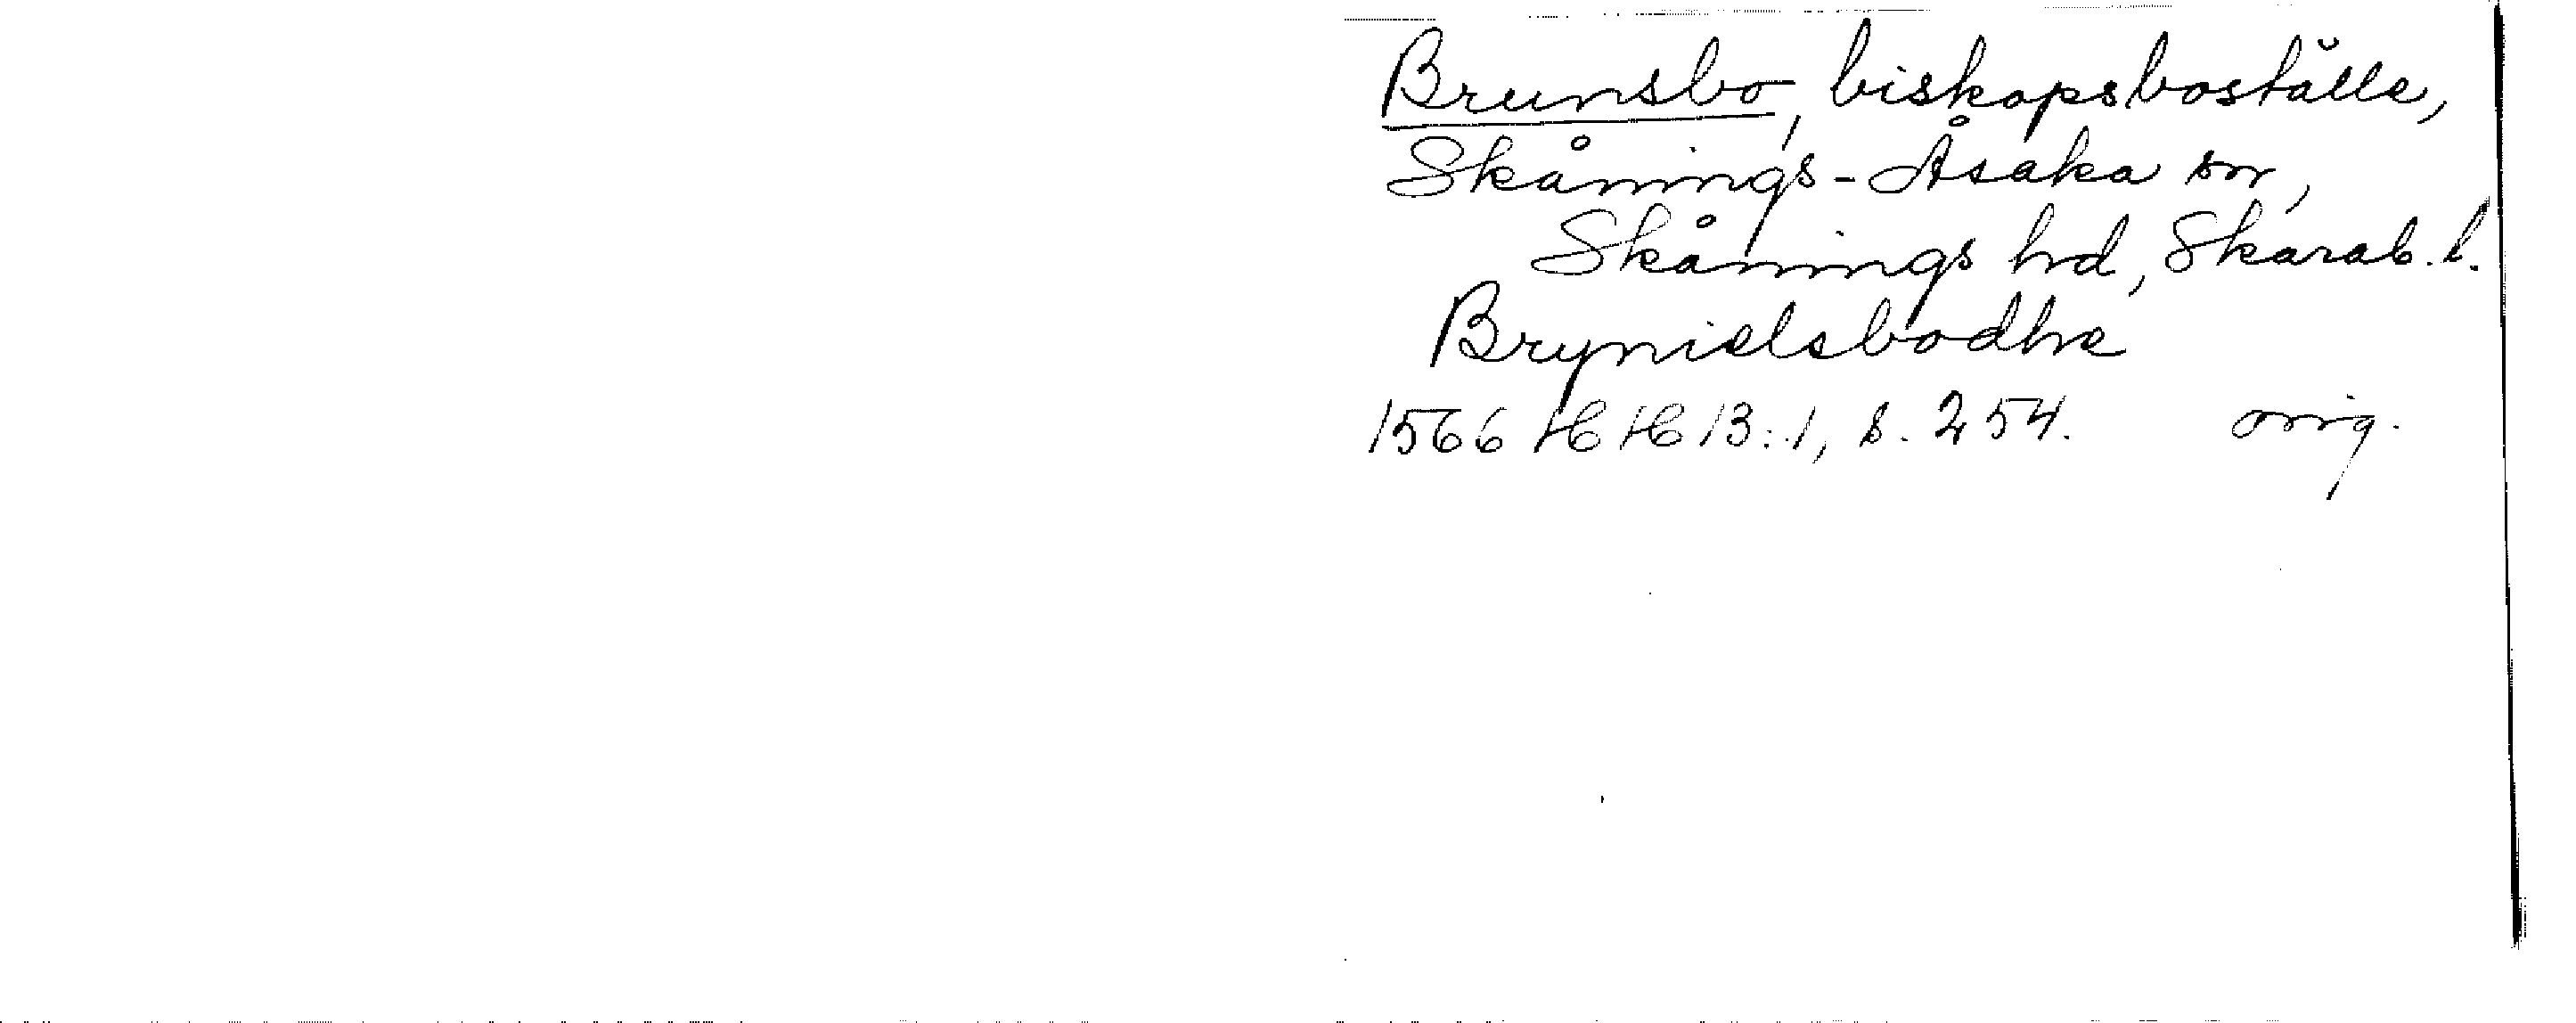 Brunsbo, biskopsboställe,
Skånings-Åsaka sn,
Skånings hd, Skarab. l.
Brynielsbodhe
1566 HH 13:1, s. 254. orig.